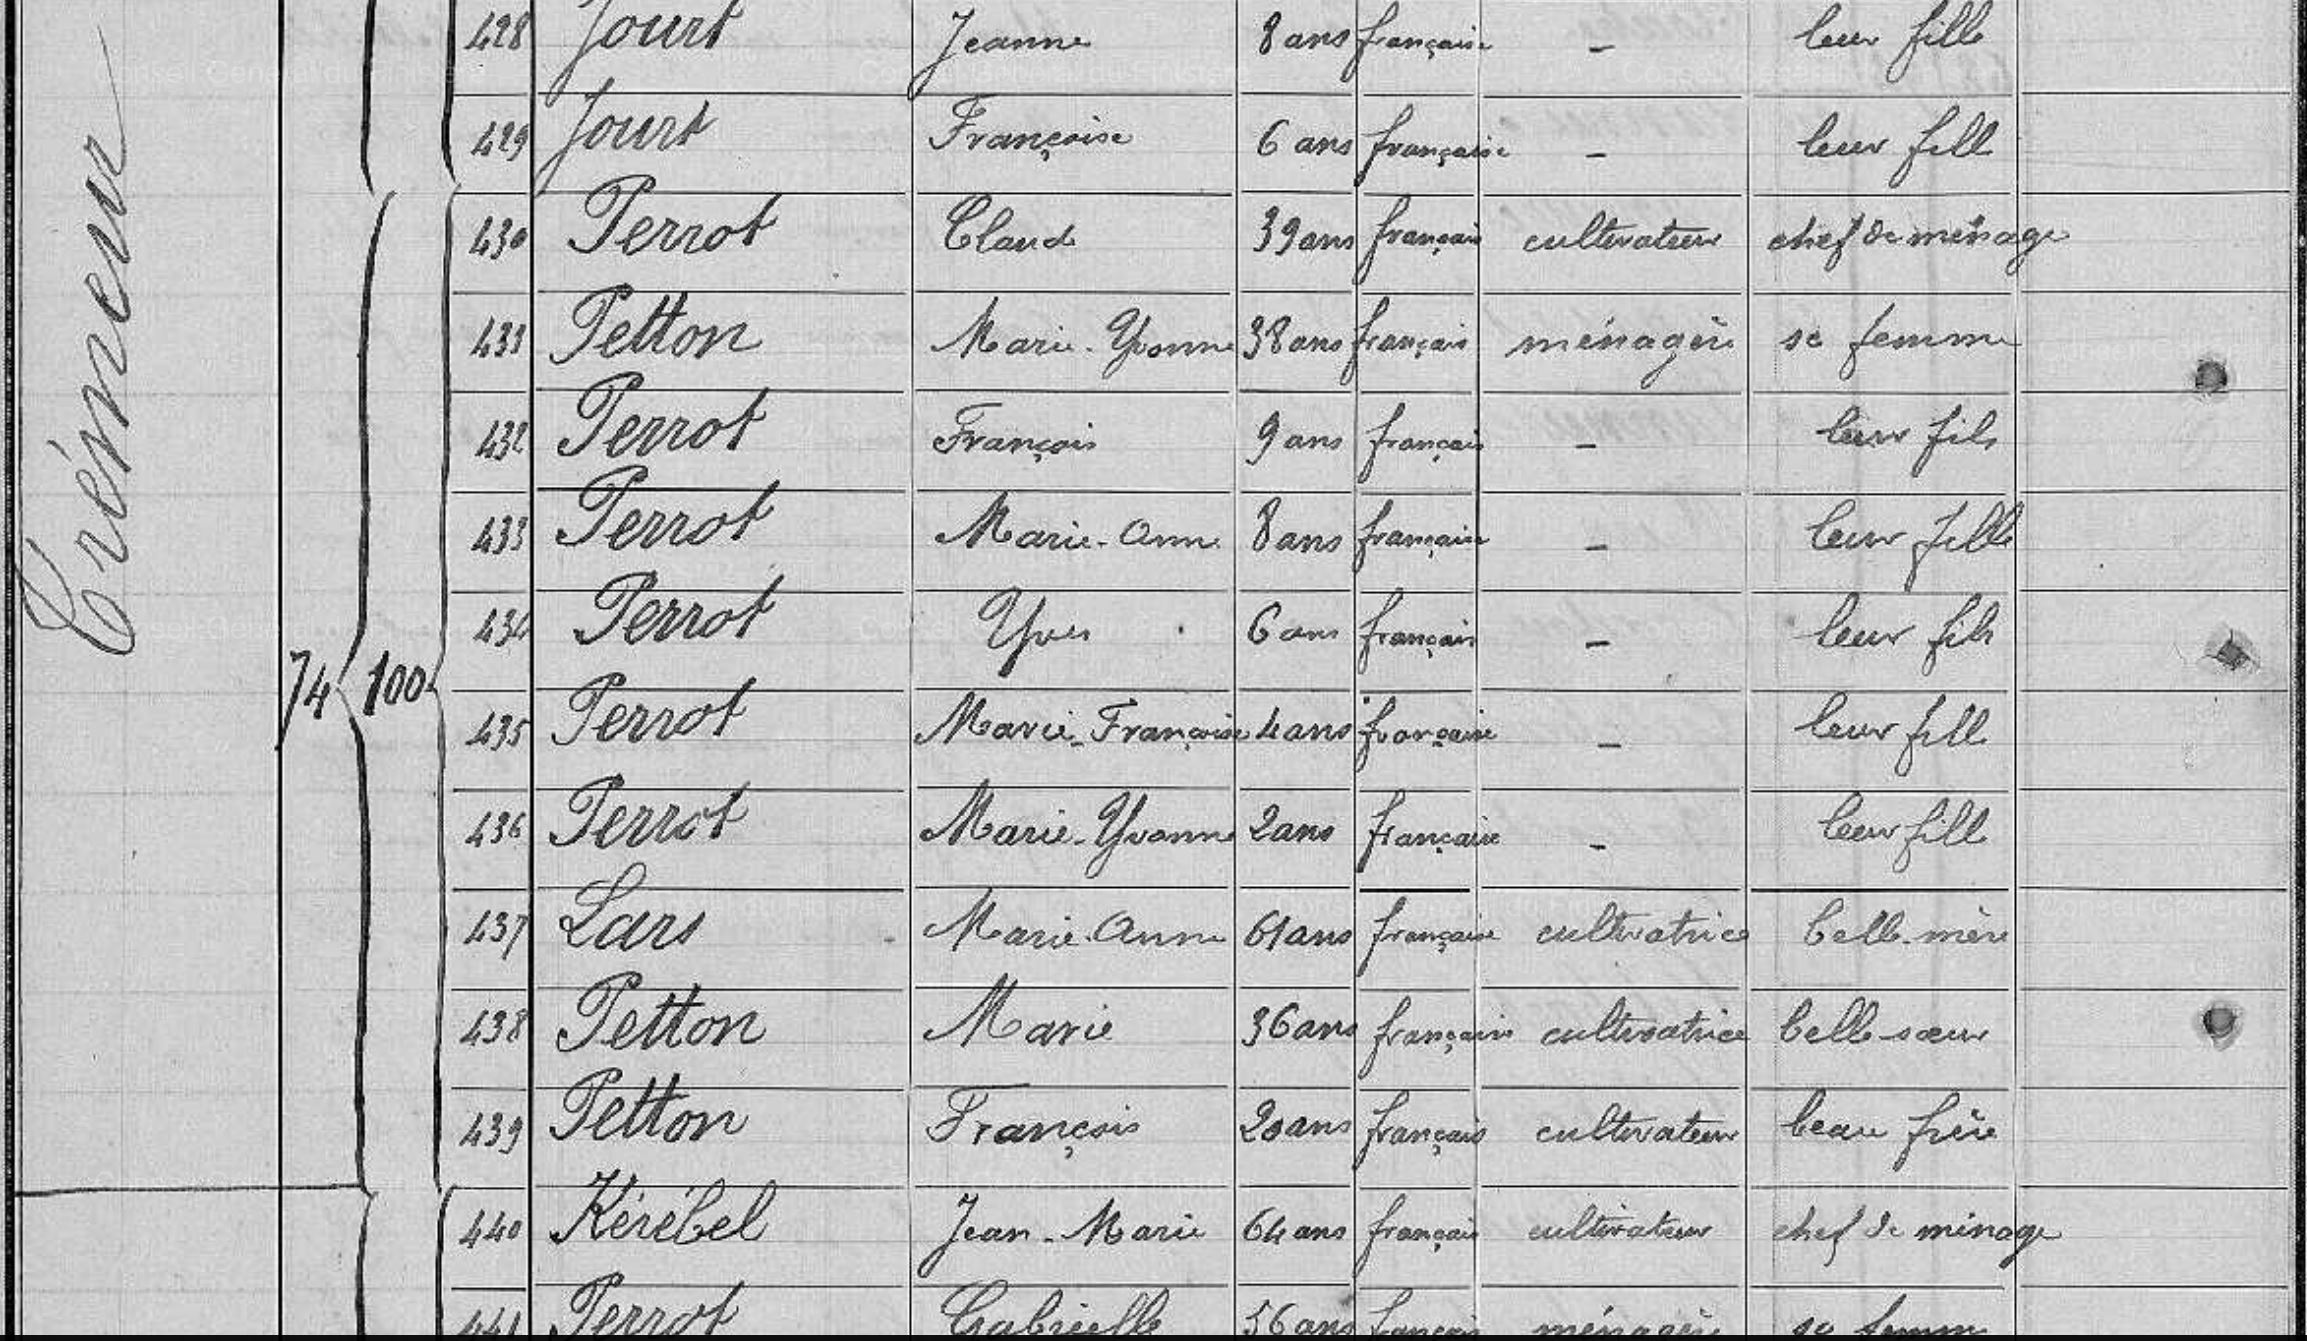 Trémeur
428 Jourt Jeanne 8 ans française – leur fille
429 Jourt Françoise 6 ans française – leur fille
430 Perrot Claude 39 ans français cultivateur chef de ménage
431 Petton Marie-Yvonne 38 ans français ménagère sa femme
432 Perrot François 9 ans français – leur fils
433 Perrot Marie-Anne 8 ans française – leur fille
434 Perrot Yves 6 ans français – leur fils
74 100
435 Perrot Marie-Françoise 4 ans française – leur fille
436 Perrot Marie-Yvonne 2 ans française – leur fille
437 Lars Marie-Anne 61 ans française cultivatrice belle-mère
438 Petton Marie 36 ans française cultivatrice belle-sœur
439 Petton François 20 ans français cultivateur beau frère
440 Kérébel Jean-Marie 64 ans français cultivateur chef de ménage
441 Perrot Gabrielle 56 ans français ménagère sa femme